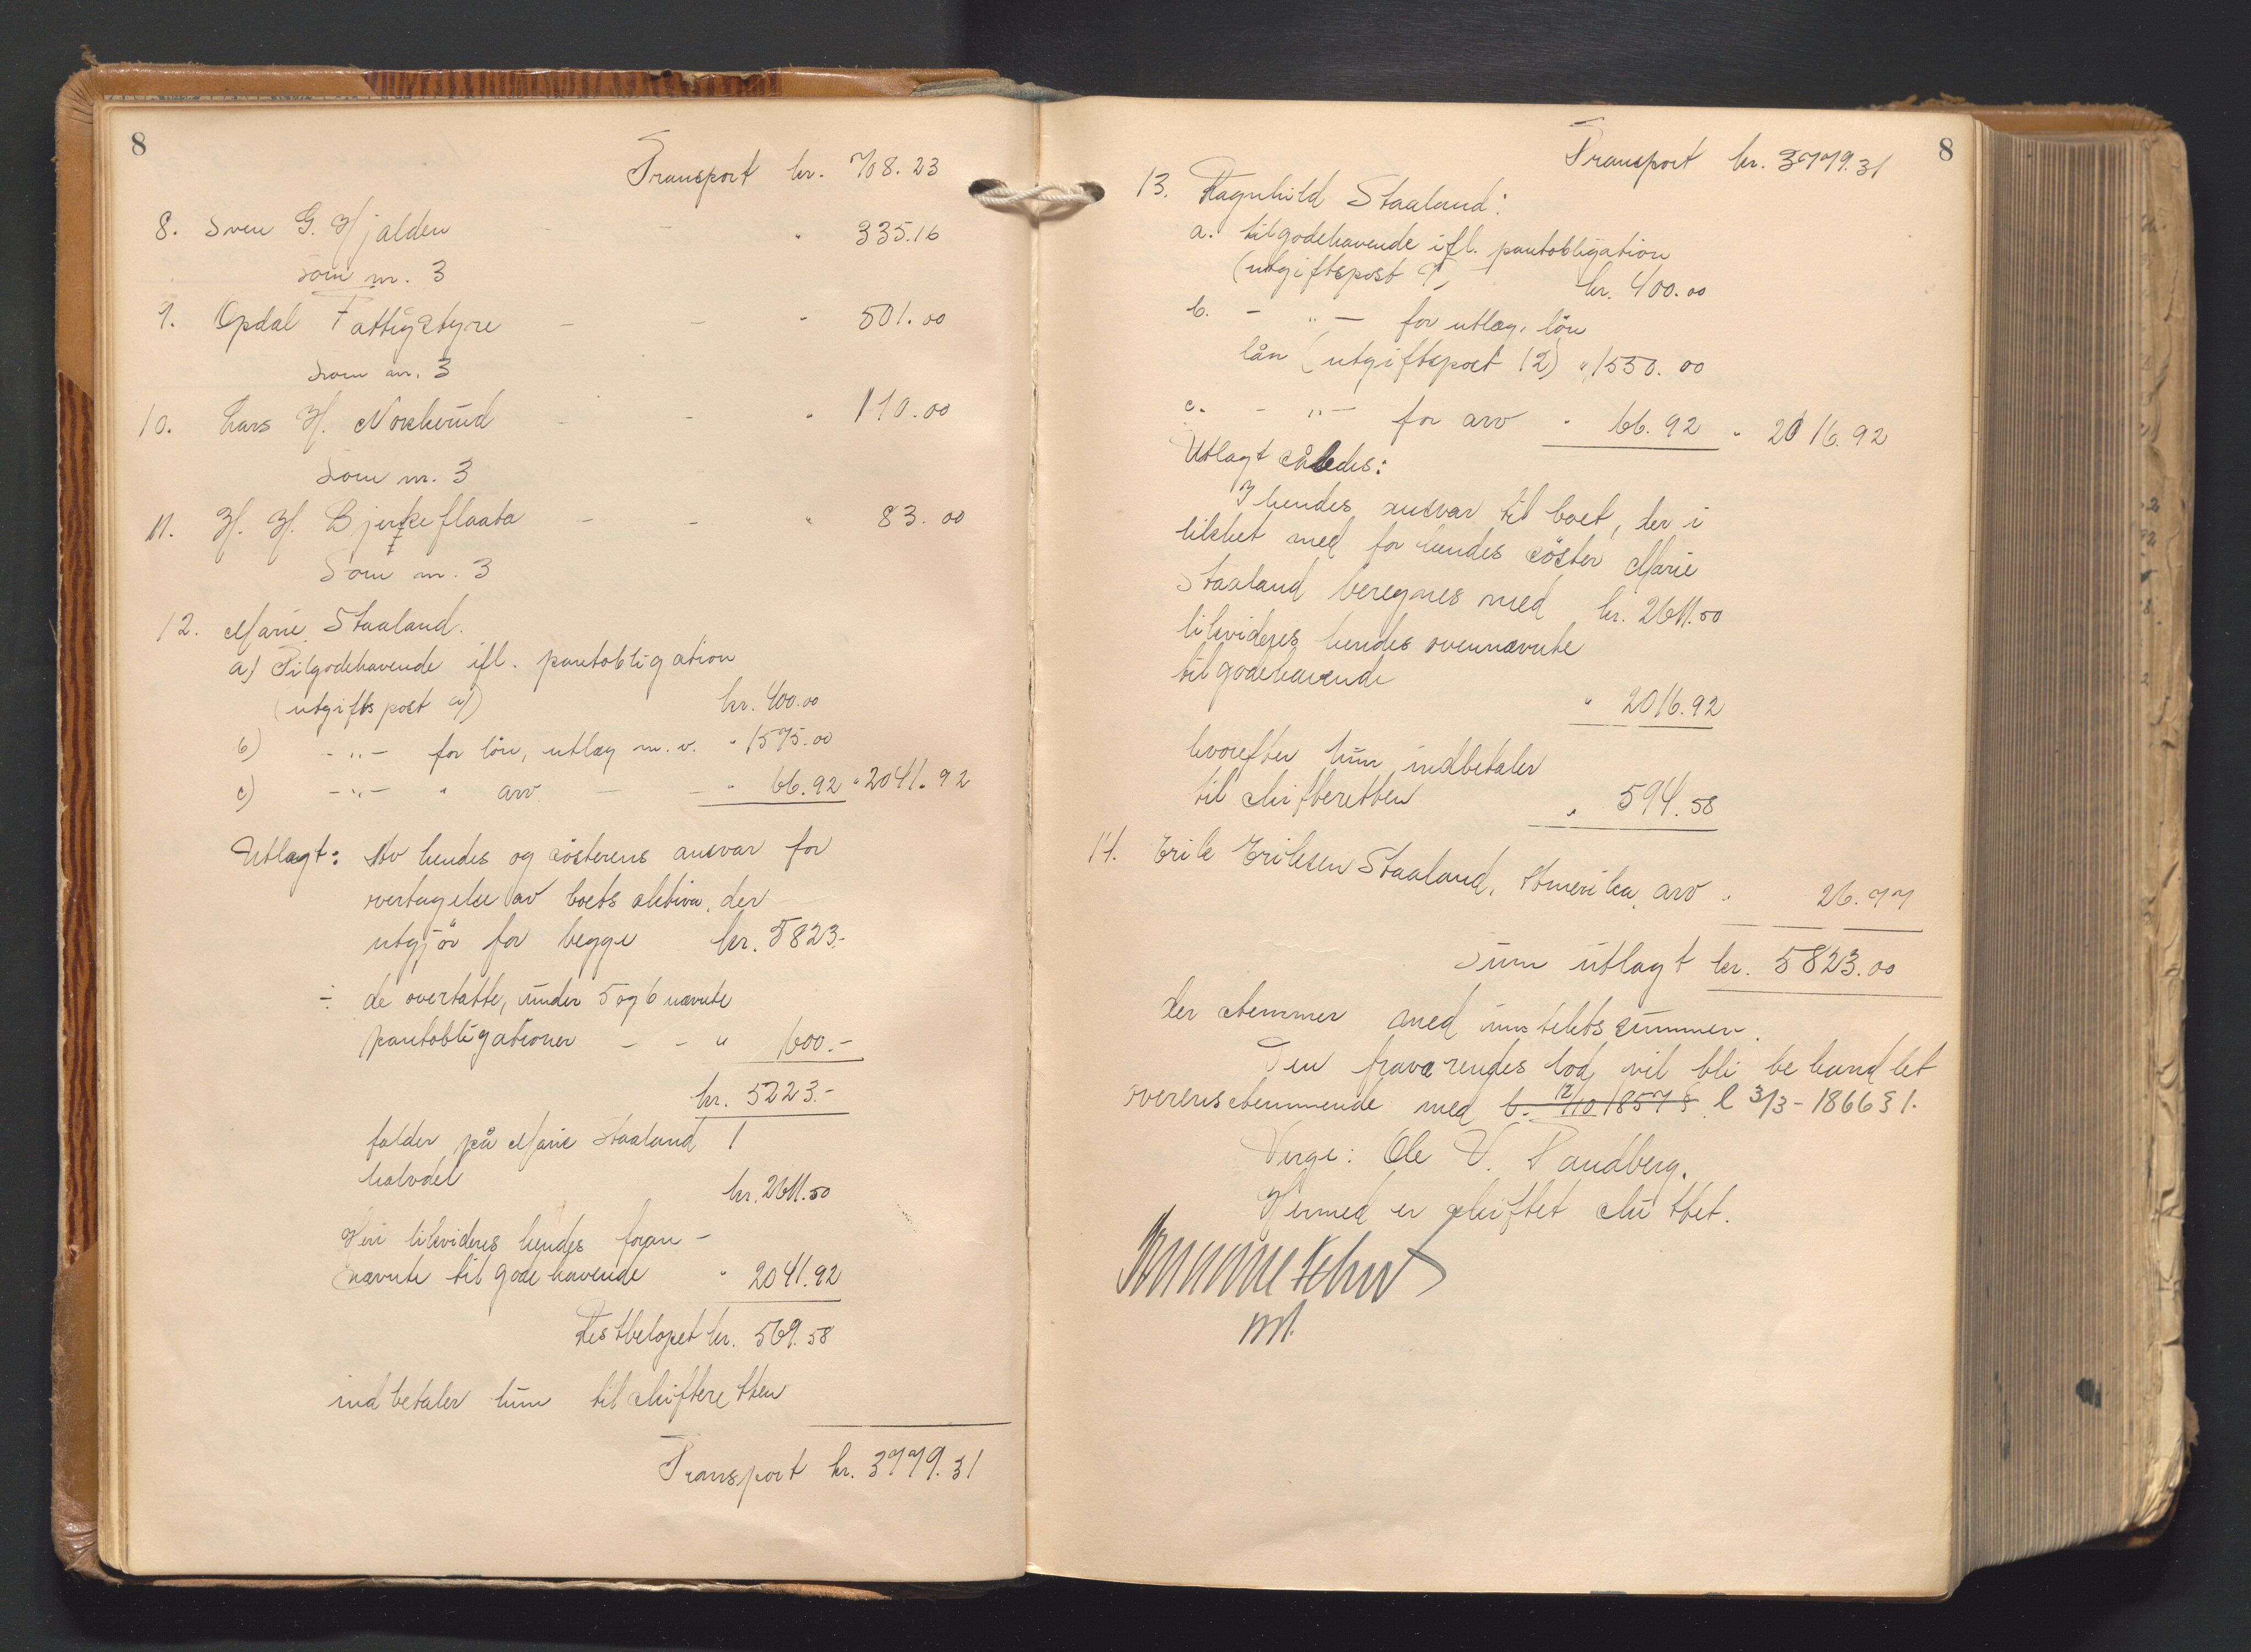 8
Transport kr. 708.23
8. Sven G. Hjalden - - " 335.16
Som nr. 3
9. Opdal Fattigstyre - - " 501.00
Som nr. 3
10. Lars H. Norherud - - " 110.00
Som nr. 3
11. H. H. Bjerkeflaata - - " 83.00
Som nr. 3
12. Marie Staaland.
a) Tilgodehavende ifl. pantobligation
(utgiftspost a/) kr. 400.00
b) - " - for lön, utlæg m. v. " 1575.00
c) - " - " arv - - " 66.92 " 2041.92
Utlagt: Av hendes og sösterens ansvar for
overtagelse av boets aktiva, der
utgjör for begge kr. 5823.-
÷ de overtatte, under 5 og 6 nævnte
pantobligationer - - " 600.-
kr. 5223.-
falder på Marie Staaland 1
halvdel kr. 2611.50
Heri likvideres hendes foran-
nævnte tilgodehavende " 2041.92
Restbeløpet kr. 569.58
indbetaler hun til skifteretten
Transport kr. 3779.31
8
Transport kr. 3779.31
13. Ragnhild Staaland:
a. tilgodehavende ifl. pantobligation
(utgiftspost 7, kr. 400.00
b. - " - for utlæg, lön
lån (utgiftspost 12) " 1550.00
c. - " - for arv " 66.92 " 2016.92
Utlagt således:
I hendes ansvar til boet, der i
likhet med for hendes söster Marie
Staaland beregnes med kr. 2611.50
likvideres hendes ovennævnte
tilgodehavende " 2016.92
hvorefter hun indbetaler
til skifteretten " 594.58
14. Erik Eriksen Staaland, Amerika, arv " 26.77
Sum utlagt kr. 5823.00
der stemmer med inntektssummen.
Den fraværendes lod vil bli behandlet
overensstemmende med l. 12/10 1857 § l 3/3-1866 § 1.
Verge: Ole V. Sandberg.
Hermed er skiftet sluttet.